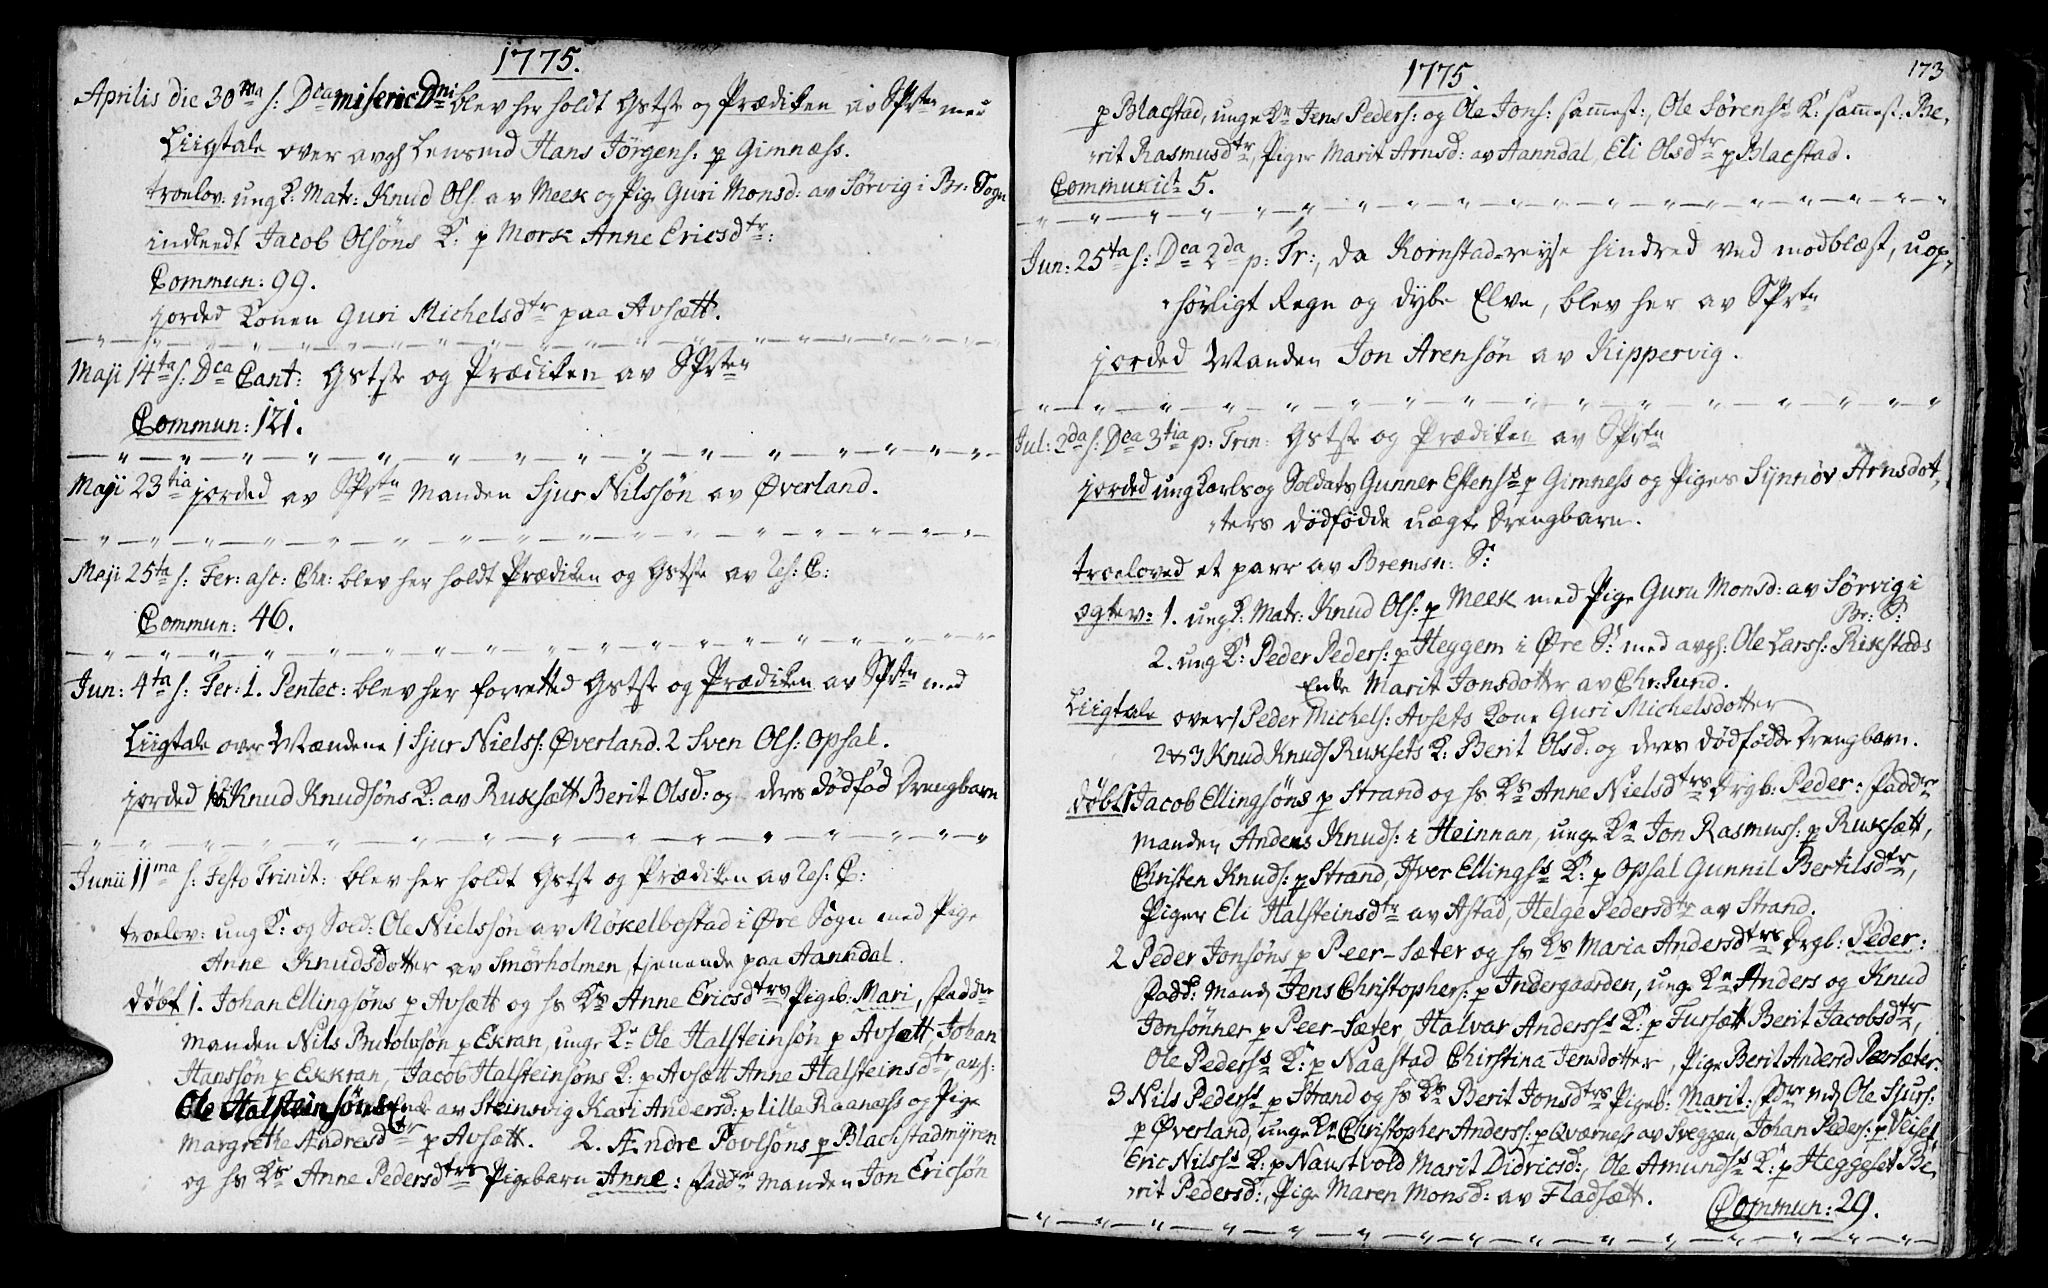 1775.
Aprilis die 30ma s: Dca miseric Dni blev her holdt Gstst og Prædiken av SPrtn med
Liigtale over avgl Lensmd Hans Jörgens: p Gimnæss.
troelov: ung K: Matr: Knud Ols: av Meek og Pige Guri Monsd: av Sörvig i Br: Sogn
indleedt Jacob Olsöns K: p Mork Anne Ericsdtr:
Commun: 99.
jorded Konen Guri Michelsdtr paa Avsætt.
Maji 14ta s: Dca Cant: Gstst og Prædiken av SPrten
Commun: 121.
Maji 23tia jorded av SPrtn Manden Sjur Nilssön av Øverland.
Maji 25ta s: Fer: asc: Chr: blev her holdt Prædiken og Gstste av Res: C:
Commun: 46.
Jun: 4ta s: Fer: 1. Pentec: blev her forretted Gstst og Prædiken av SPrtn med
Liigtale over Mændene 1 Sjur Niels: Øverland. 2 Sven Ols: Opsal.
jorded Knud Knudsöns K: av Ruksætt Berit Olsd: og deres dödfød Drengbarn
Junii 11ma s: Festo Trinit: blev her holdt Gstst og Prædiken av Res: C:
troelov: ung K: og Sold: Ole Nielssön av Mökelbostad i Øre Sogn med Pige
Anne Knudsdotter av Smörholmen, tjenende paa Aanndal.
döbt 1. Johan Ellingsöns p Avsætt og hs Ks Anne Ericsdtrs Pigeb: Mari, Faddre
Manden Nils Brutolvsön p Ekran, unge Kr Ole Halsteinsön p Avsætt, Johan
Hanssön p Ekkran, Jacob Halsteinsöns K: p Avsætt Anne Halsteinsdtr, avs:
Ole Halsteinsöns Enke av Steinsvig Kari Andersd: p Lilla Raanæss og Pige
Margrethe Andresdtr p Avsætt. 2. Ændre Povlsöns p Blachstadmÿren
og hs Ks Anne Pedersdtrs Pigebarn Anne: Faddre Manden Jon Ericsön
173
1775.
p Blacstad, unge Kn Jens Peders: og Ole Jons: samest:, Ole Sörenss K: samest: Be,
rit Rasmusdtr, Piger Marit Arnsd: av Aanndal, Eli Olsdtr p Blacstad.
Communict 5.
Jun: 25ta s: Dca 2da p: Tr:, da Kornstad-reyse hindred ved modblæst, uop,
hörligt Regn og dybe Elve, blev her av SPrtn
jorded Manden Jon Arensön av Kippervig.
Jul: 2da s: Dca 3tia p: Trin: Gstst og Prædiken av SPrtn
jorded ungkarls og Soldats Gunner Estenss p Gimness og Piges Synnöv Arnsdot,
ters dödfödde uægte Drengbarn.
troeloved et parr av Bremsn: S:
ogtev: 1. ung K: Matr: Knud Ols: p Meek med Pige Guru Monsd: av Sörvig i
Br: S:
2. ung K: Peder Peders: p Heggem i Øre S: med avgs: Ole Larss: Rikstads
Enke Marit Jonsdotter av Chr: Sund.
Liigtale over 1 Peder Michels: Avsets Kone Guri Michelsdotter
2 & 3 Knud Knuds Ruksets K: Berit Olsd: og deres dödfödde Drengbarn.
döbt 1 Jacob Ellingsöns p Strand og hs Ks Anne Nielsdtrs Drgb: Peder: Faddre
Manden Anders Knuds: i Heinnan, unge Kn Jon Rasmuss: p Ruksætt,
Christen Knuds: p Strand, Iver Ellingss K: p Opsal Gunnil Bertilsdtr,
Piger Eli Halsteinsdtr av Astad, Helge Pedersdtr av Strand.
2 Peder Jonsöns p Peer-Sæter og hs Ks Maria Andersdtrs Drgb: Peder:
Fadd: Mand Jens Christophers: p Indergaarden, unge Kn Anders og Knud
Jonsönner p Peer-Sæter, Halvar Anderss K: p Fursætt Berit Jacobsdtr,
Ole Pederss K: p Naastad Chirstina Jensdotter, Pige Berit Andersd Peersæter.
3 Nils Pederss p Strand og hs Ks Berit Jonsdtrs Pigeb: Marit: Fdre Md Ole Sjurs:
p Øverland, unge Kn Christopher Anderss: p Qværness av Sveggen, Johan Peders: p Veiset,
Eric Nilss K: p Naustvold Marit Didricsd:, Ole Amundss K: p Heggeset Be,
rit Pedersd:, Pige Maren Monsd: av Fladsætt. Commun: 29.